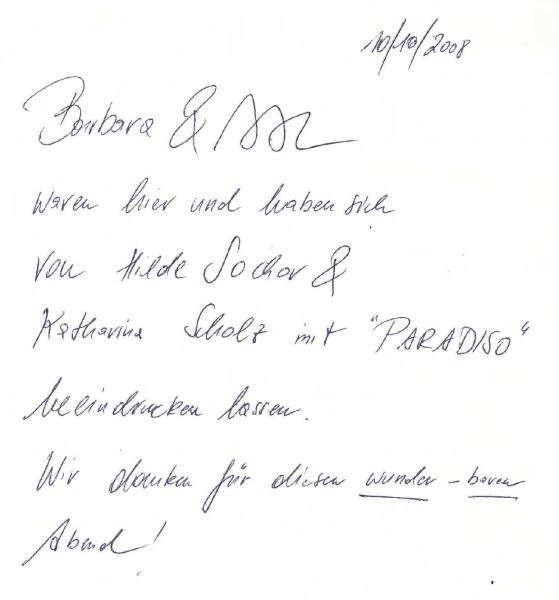 10/10/2008
Barbara &
waren hier und haben sich
von Hilde Sochor &
Katharina Scholz mit "PARADISO"
beeindrucken lassen.
Wir danken für diesen wunder-baren
Abend!